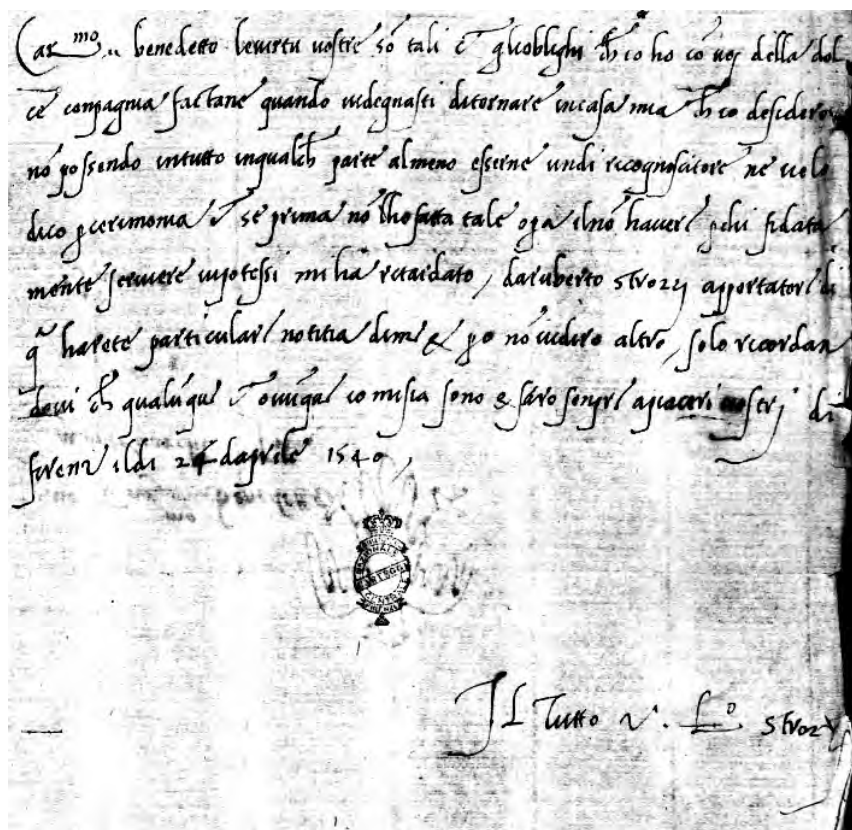 Car.mo benedetto le virtu vostre sō tali et gliobblighi ch io ho cō voi della dol
ce compagnia factane quando videgnasti ditornare incasa mia ch io desidero
nō possendo intutto inqualch parte almeno esserne undi ricognoscatore ne
dico p cerimonia et se prima nō ho fatta tale opa ilnō haver p chi fidata
mente scrivere vipotessi mi ha ritardato, da ruberto strozzi apportator di
qā harete particular notitia di me & po nō vi diro altro, solo ricordan
dovi ch qualūque et ovūque io mi sia sono & saro sempre apiaceri vostri di
firenz ildi 24 daprile 1540,
NAZIONALE
CENTRALE
Il Tutto v. L.o Stroz